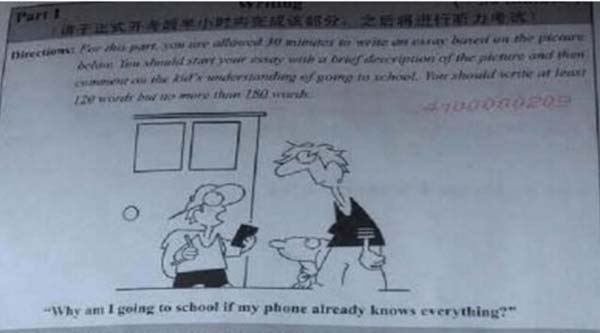 Part I Writing
(请于正式开考后半小时内完成该部分，之后将进行听力考试)
Directions: For this part, you are allowed 30 minutes to write an essay based on the picture
below. You should start your essay with a brief description of the picture and then
comment on the kid's understanding of going to school. You should write at least
120 words but no more than 180 words.
4100080209
"Why am I going to school if my phone already knows everything?"